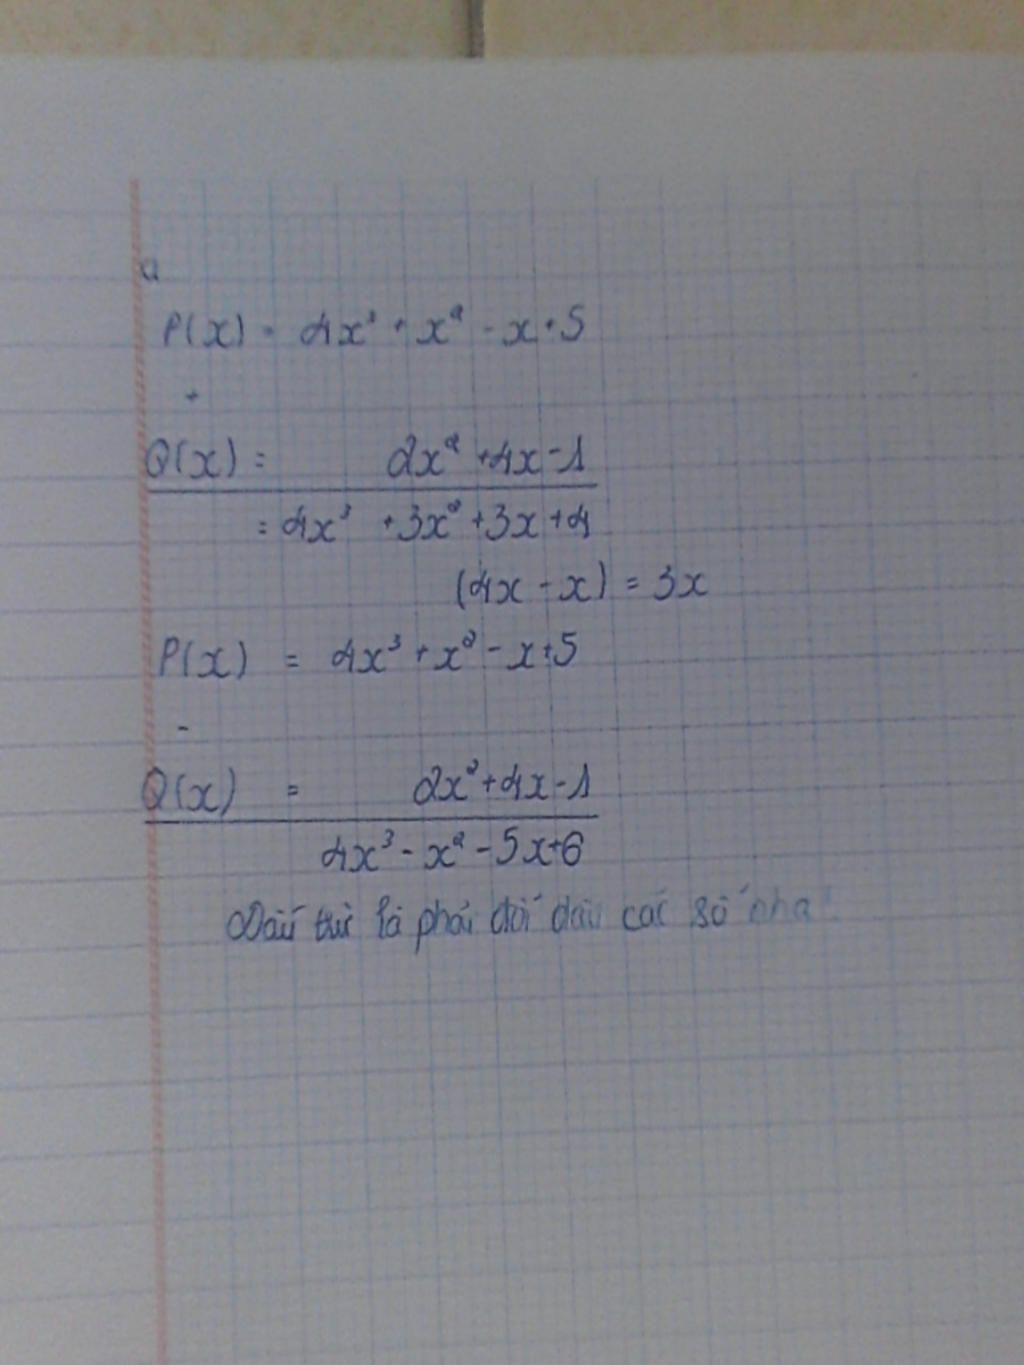 a
P(x) = 4x³ + x² - x + 5
+
Q(x) = 2x² + 4x - 1
= 4x³ + 3x² + 3x + 4
(4x - x) = 3x
P(x) = 4x³ + x² - x + 5
-
Q(x) = 2x² + 4x - 1
4x³ - x² - 5x + 6
Dấu trừ là phải đổi dấu các số nha